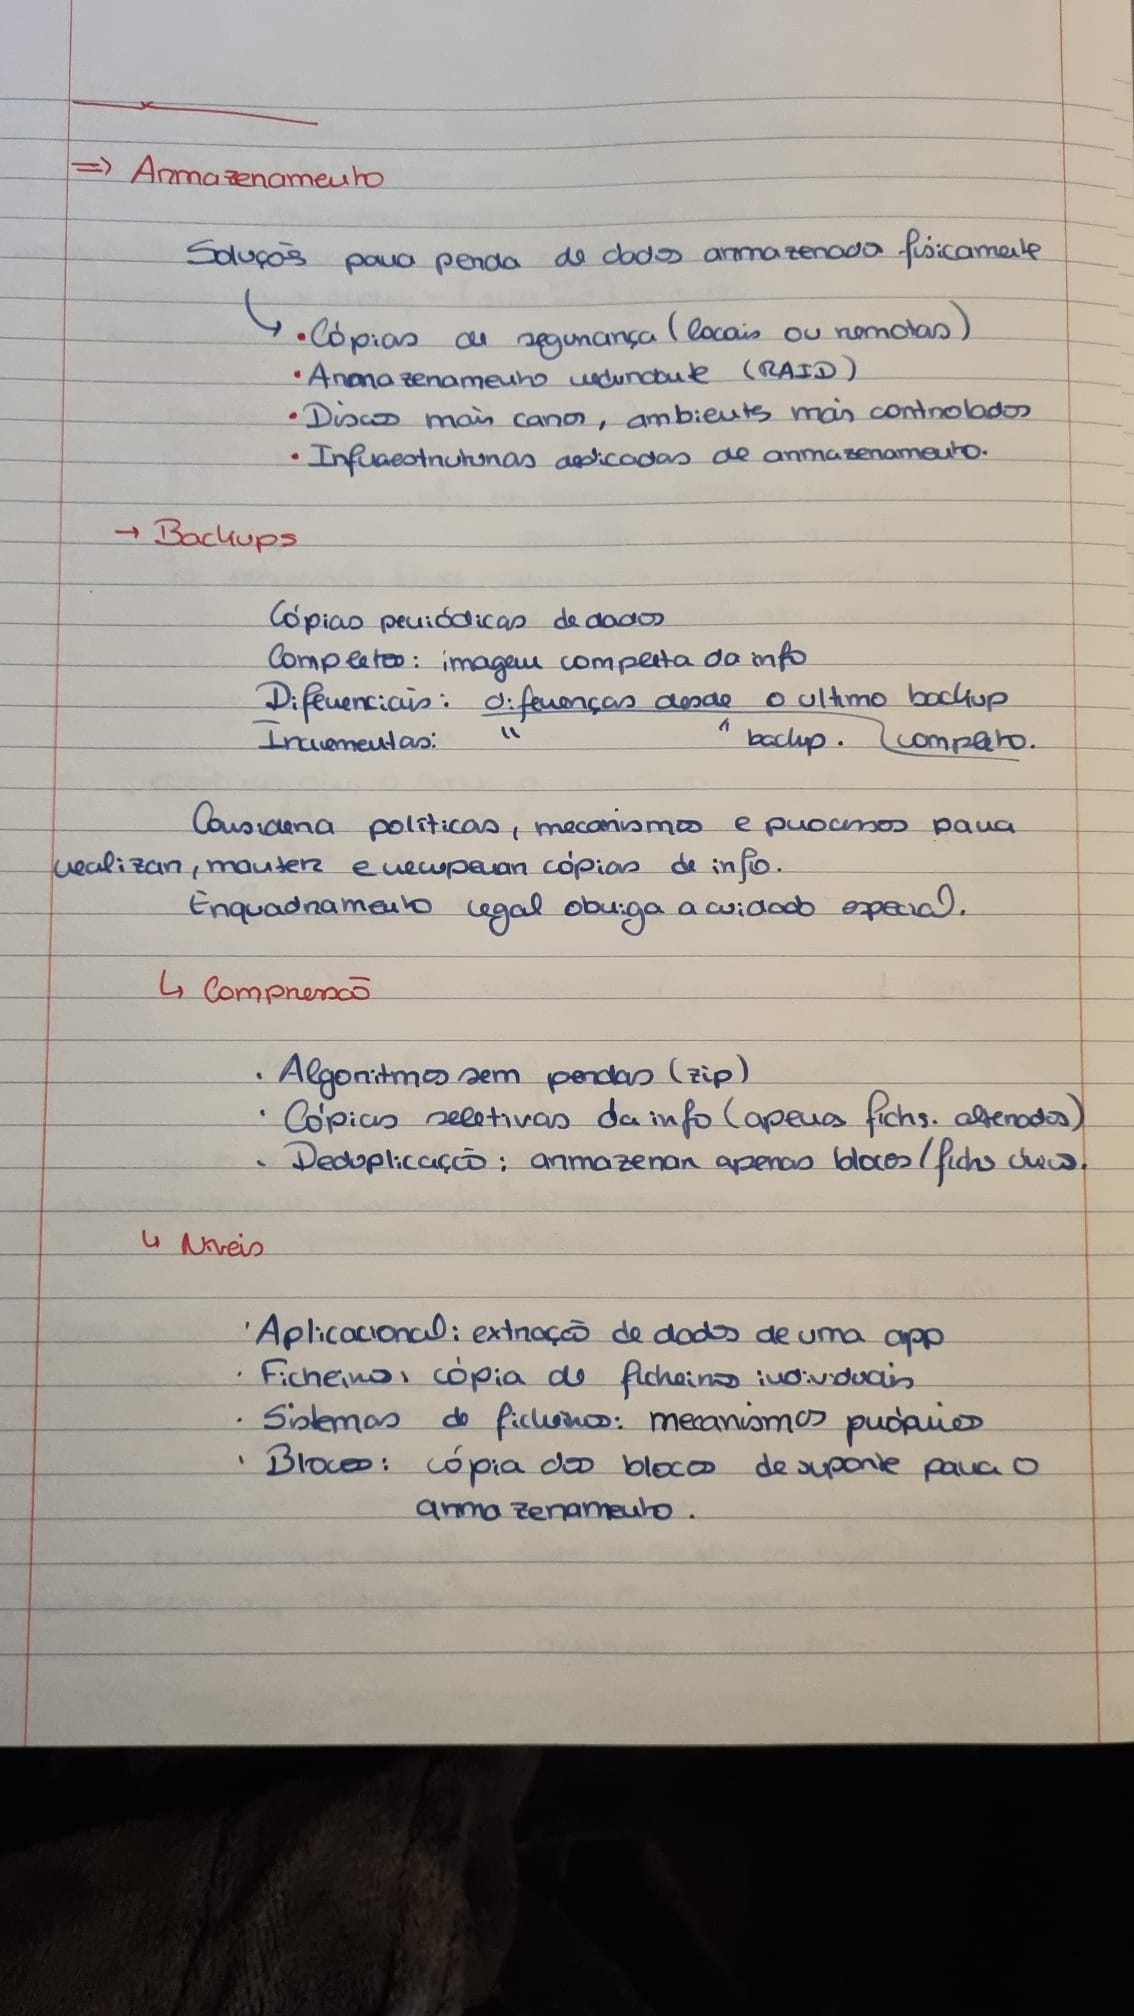 => Armazenamento
Soluçõs para perda de dados armazenado fisicamente
↳ • Cópias de segurança (locais ou remotas)
• Armazenamento redundante (RAID)
• Discos mais caros, ambientes mais controlados
• Infraestruturas dedicadas de armazenamento.
→ Backups
Cópias periódicas de dados
Completos: imagem completa da info
Diferenciais: diferenças desde o ultimo backup
Incrementas: " ^ backup. completo.
Considera políticas, mecanismos e processos para
realizar, manter e recuperar cópias de info.
Enquadramento legal obriga a cuidado especial.
↳ Compressão
• Algoritmos sem perdas (zip)
• Cópias seletivas da info (apenas fichs. alterados)
• Deduplicação: armazenar apenas blocos/fichs únicos.
↳ Níveis
• Aplicacional: extração de dados de uma app
• Ficheiros: cópia de ficheiros individuais
• Sistemas de ficheiros: mecanismos próprios
• Blocos: cópia dos blocos de suporte para o
armazenamento.